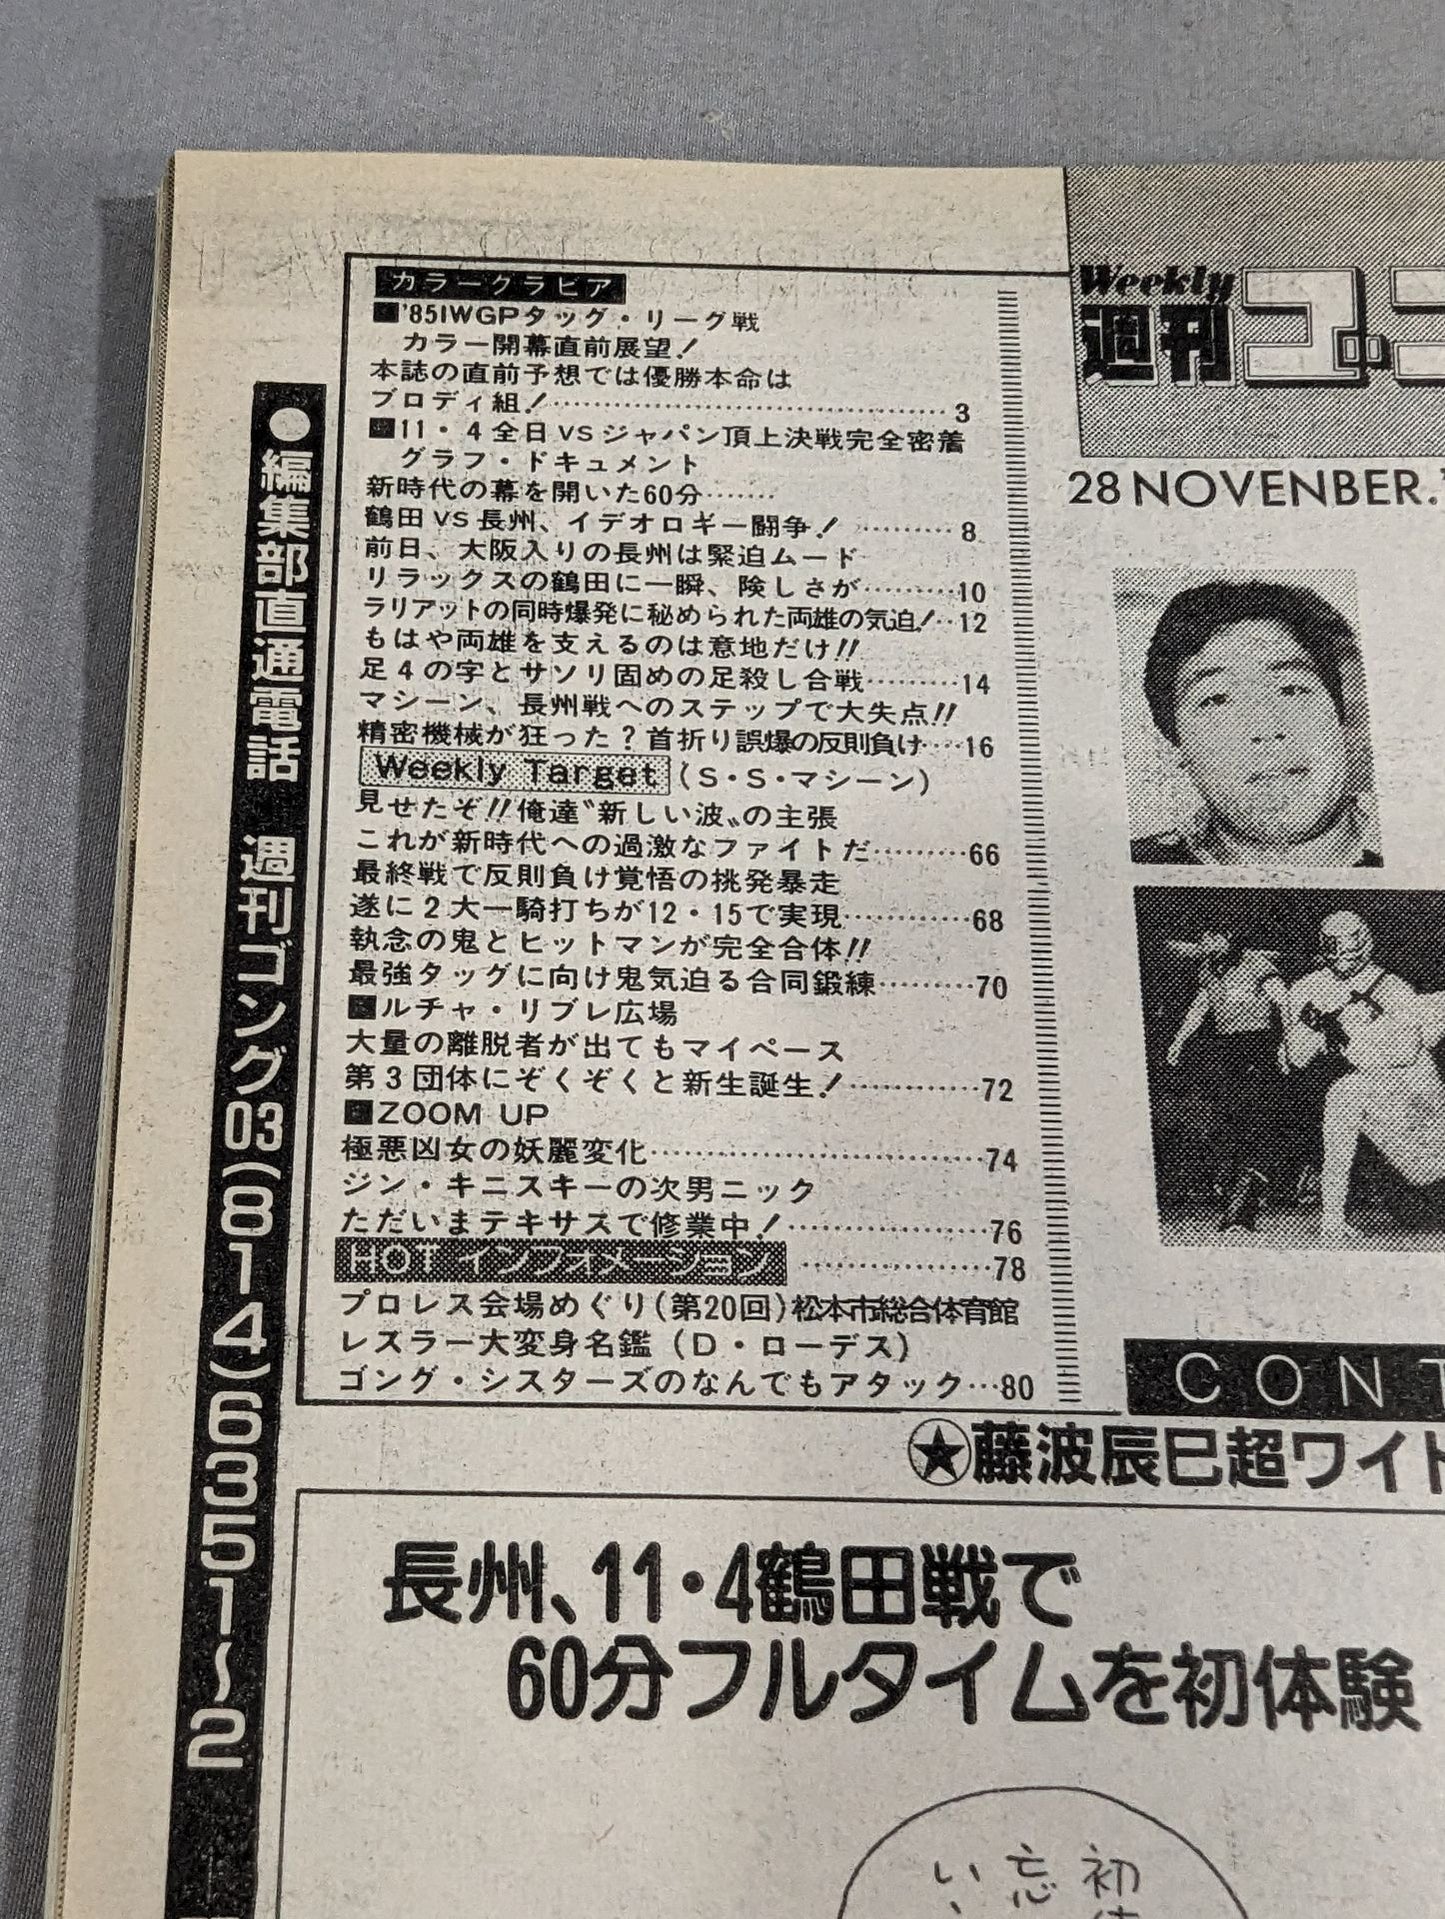 カラーグラビア
'85IWGPタッグ・リーグ戦
カラー開幕直前展望!
本誌の直前予想では優勝本命は
ブロディ組!……………………………3
11・4全日VSジャパン頂上決戦完全密着
グラフ・ドキュメント
新時代の幕を開いた60分……
鶴田VS長州、イデオロギー闘争!………8
前日、大阪入りの長州は緊迫ムード
リラックスの鶴田に一瞬、険しさが………10
ラリアットの同時爆発に秘められた両雄の気迫!…12
もはや両雄を支えるのは意地だけ!!
足4の字とサソリ固めの足殺し合戦………14
マシーン、長州戦へのステップで大失点!!
精密機械が狂った?首折り誤爆の反則負け…16
Weekly Target(S・S・マシーン)
見せたぞ!!俺達〝新しい波〟の主張
これが新時代への過激なファイトだ………66
最終戦で反則負け覚悟の挑発暴走
遂に2大一騎打ちが12・15で実現…………68
執念の鬼とヒットマンが完全合体!!
最強タッグに向け鬼気迫る合同鍛練………70
ルチャ・リブレ広場
大量の離脱者が出てもマイペース
第3団体にぞくぞくと新生誕生!…………72
ZOOM UP
極悪凶女の妖麗変化……………………………74
ジン・キニスキーの次男ニック
ただいまテキサスで修業中!………………76
HOTインフォメーション………………78
プロレス会場めぐり(第20回)松本市総合体育館
レスラー大変身名鑑(D・ローデス)
ゴング・シスターズのなんでもアタック…80
●編集部直通電話 週刊ゴング03(814)6351~2
Weekly
週刊ゴン
28 NOVENBER.'
CONT
★藤波辰巳超ワイド
長州、11・4鶴田戦で
60分フルタイムを初体験
初体
忘
い